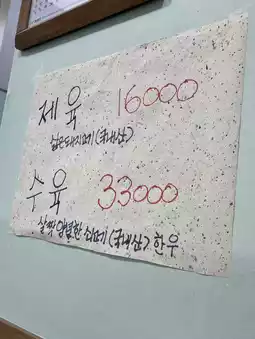 제육 16000
삶은돼지고기(국내산)
수육 33000
살짝 양념한 쇠고기(국내산) 한우